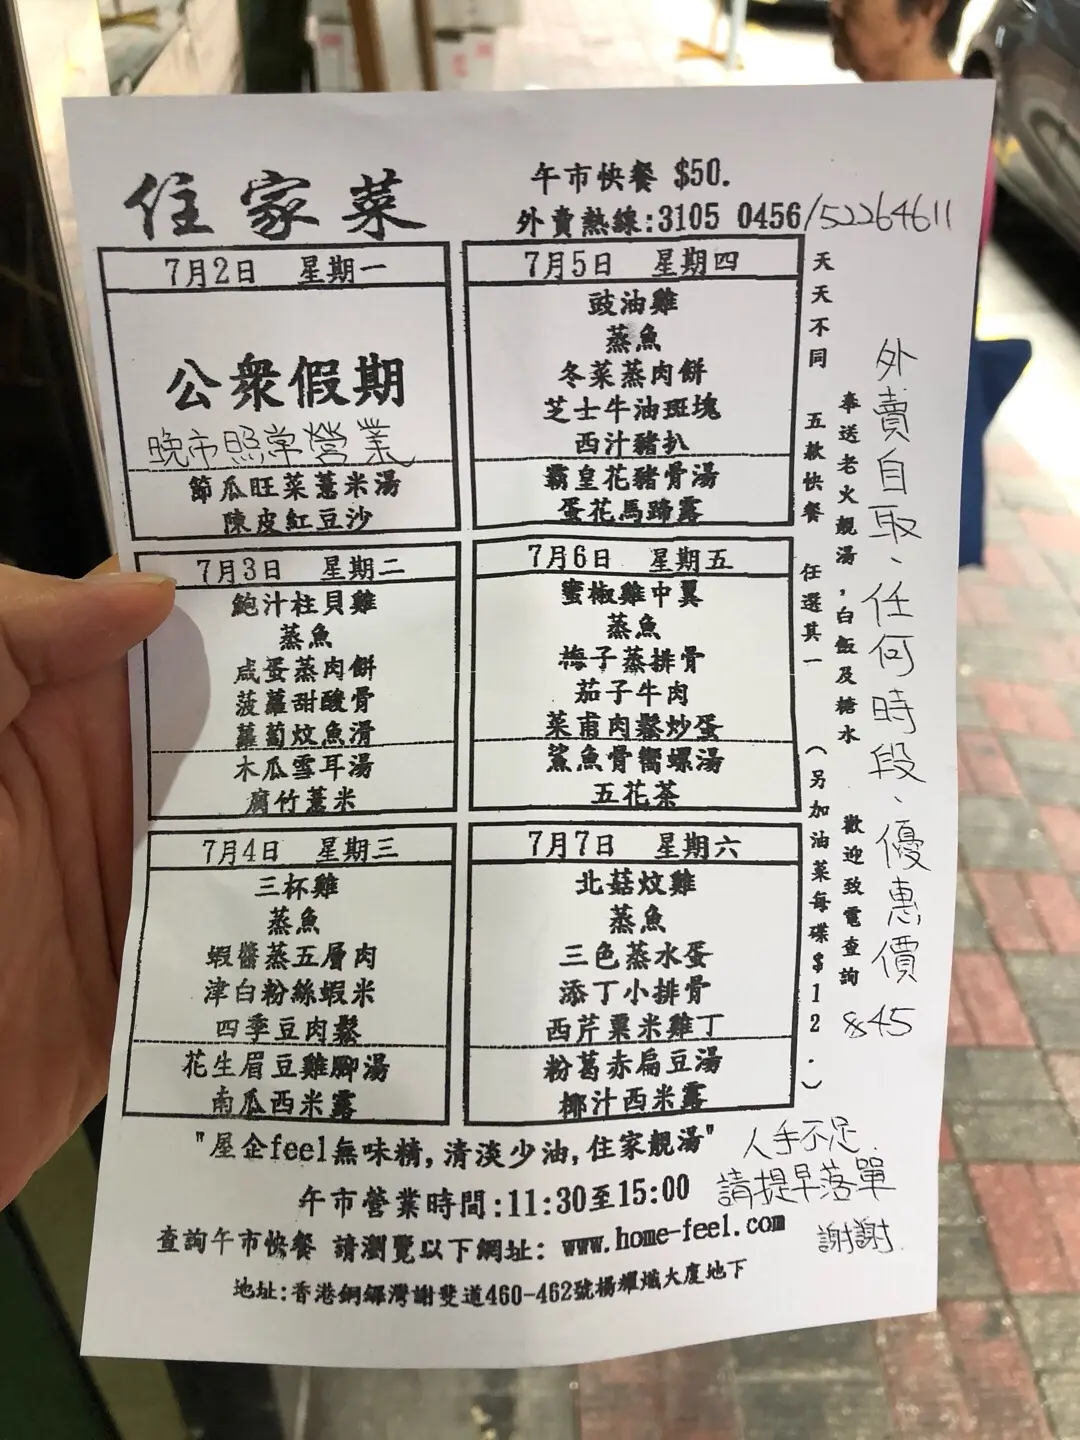 住家菜
午市快餐 $50.
外賣熱線:3105 0456/52264611
7月2日 星期一
公眾假期
晚市照常營業
節瓜旺菜薏米湯
陳皮紅豆沙
7月3日 星期二
鮑汁柱貝雞
蒸魚
咸蛋蒸肉餅
菠蘿甜酸骨
蘿蔔炆魚滑
木瓜雪耳湯
腐竹薏米
7月4日 星期三
三杯雞
蒸魚
蝦醬蒸五層肉
津白粉絲蝦米
四季豆肉鬆
花生眉豆雞腳湯
南瓜西米露
7月5日 星期四
豉油雞
蒸魚
冬菜蒸肉餅
芝士牛油斑塊
西汁豬扒
霸皇花豬骨湯
蛋花馬蹄露
7月6日 星期五
蜜椒雞中翼
蒸魚
梅子蒸排骨
茄子牛肉
菜甫肉鬆炒蛋
鯊魚骨嚮螺湯
五花茶
7月7日 星期六
北菇炆雞
蒸魚
三色蒸水蛋
添丁小排骨
西芹粟米雞丁
粉葛赤扁豆湯
椰汁西米露
天天不同 五款快餐 任選其一 (另加油菜每碟$12.)
奉送老火靚湯,白飯及糖水 歡迎致電查詢
外賣自取、任何時段、優惠價
$45
"屋企feel無味精,清淡少油,住家靚湯"
人手不足
請提早落單
謝謝
午市營業時間:11:30至15:00
查詢午市快餐 請瀏覽以下網址: www.home-feel.com
地址:香港銅鑼灣謝斐道460-462號楊耀熾大廈地下